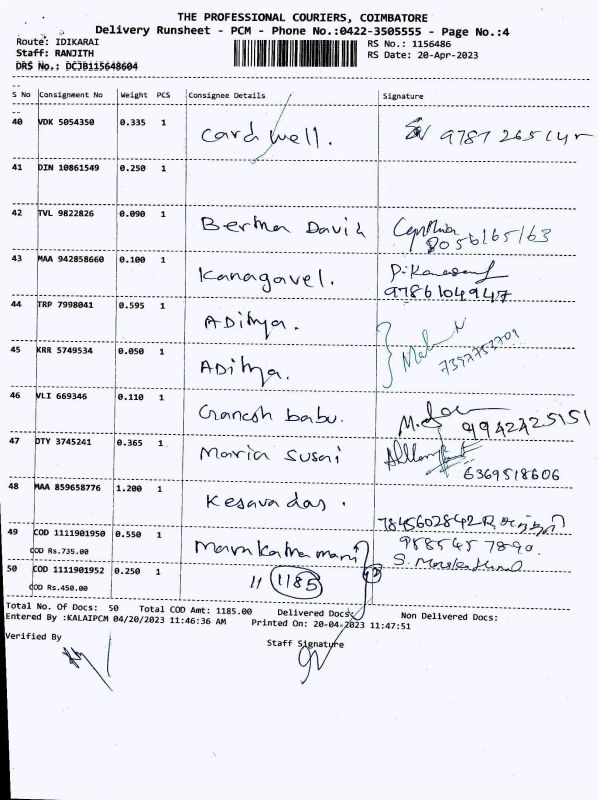 THE PROFESSIONAL COURIERS, COIMBATORE
Delivery Runsheet - PCM - Phone No.:0422-3505555 - Page No.:4
Route: IDIKARAI RS No.: 1156486
Staff: RANJITH RS Date: 20-Apr-2023
DRS No.: DCJB115648604
S No Consignment No Weight PCS Consignee Details Signature
40 VDK 5054350 0.335 1 Cardwell.
41 DIN 10861549 0.250 1
42 TVL 9822826 0.090 1 Berma David
8056165163
43 MAA 942858660 0.100 1 Kanagavel.
9786104947
44 TRP 7998041 0.595 1 ADitya.
45 KRR 5749534 0.050 1 ADitya.
46 VLI 669346 0.110 1 Ganesh babu. 9942425151
47 OTY 3745241 0.365 1 Maria Susai
6369518606
48 MAA 859658776 1.200 1 Kesavadas.
7845602842
49 COD 1111901950 0.550 1 9585457890.
COD Rs.735.00
50 COD 1111901952 0.250 1 " 1185
COD Rs.450.00
Total No. Of Docs: 50 Total COD Amt: 1185.00 Delivered Docs: Non Delivered Docs:
Entered By :KALAIPCM 04/20/2023 11:46:36 AM Printed On: 20-04-2023 11:47:51
Verified By Staff Signature